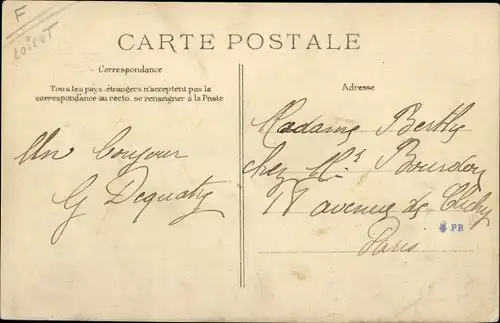 F
LOIRET
CARTE POSTALE
Correspondance
Tous les pays étrangers n'acceptent pas la
correspondance au recto. se renseigner à la Poste
Un bonjour
G
Adresse
Madame Berthy
chez Mr Bourdon
18 avenue de Clichy
Paris
PB